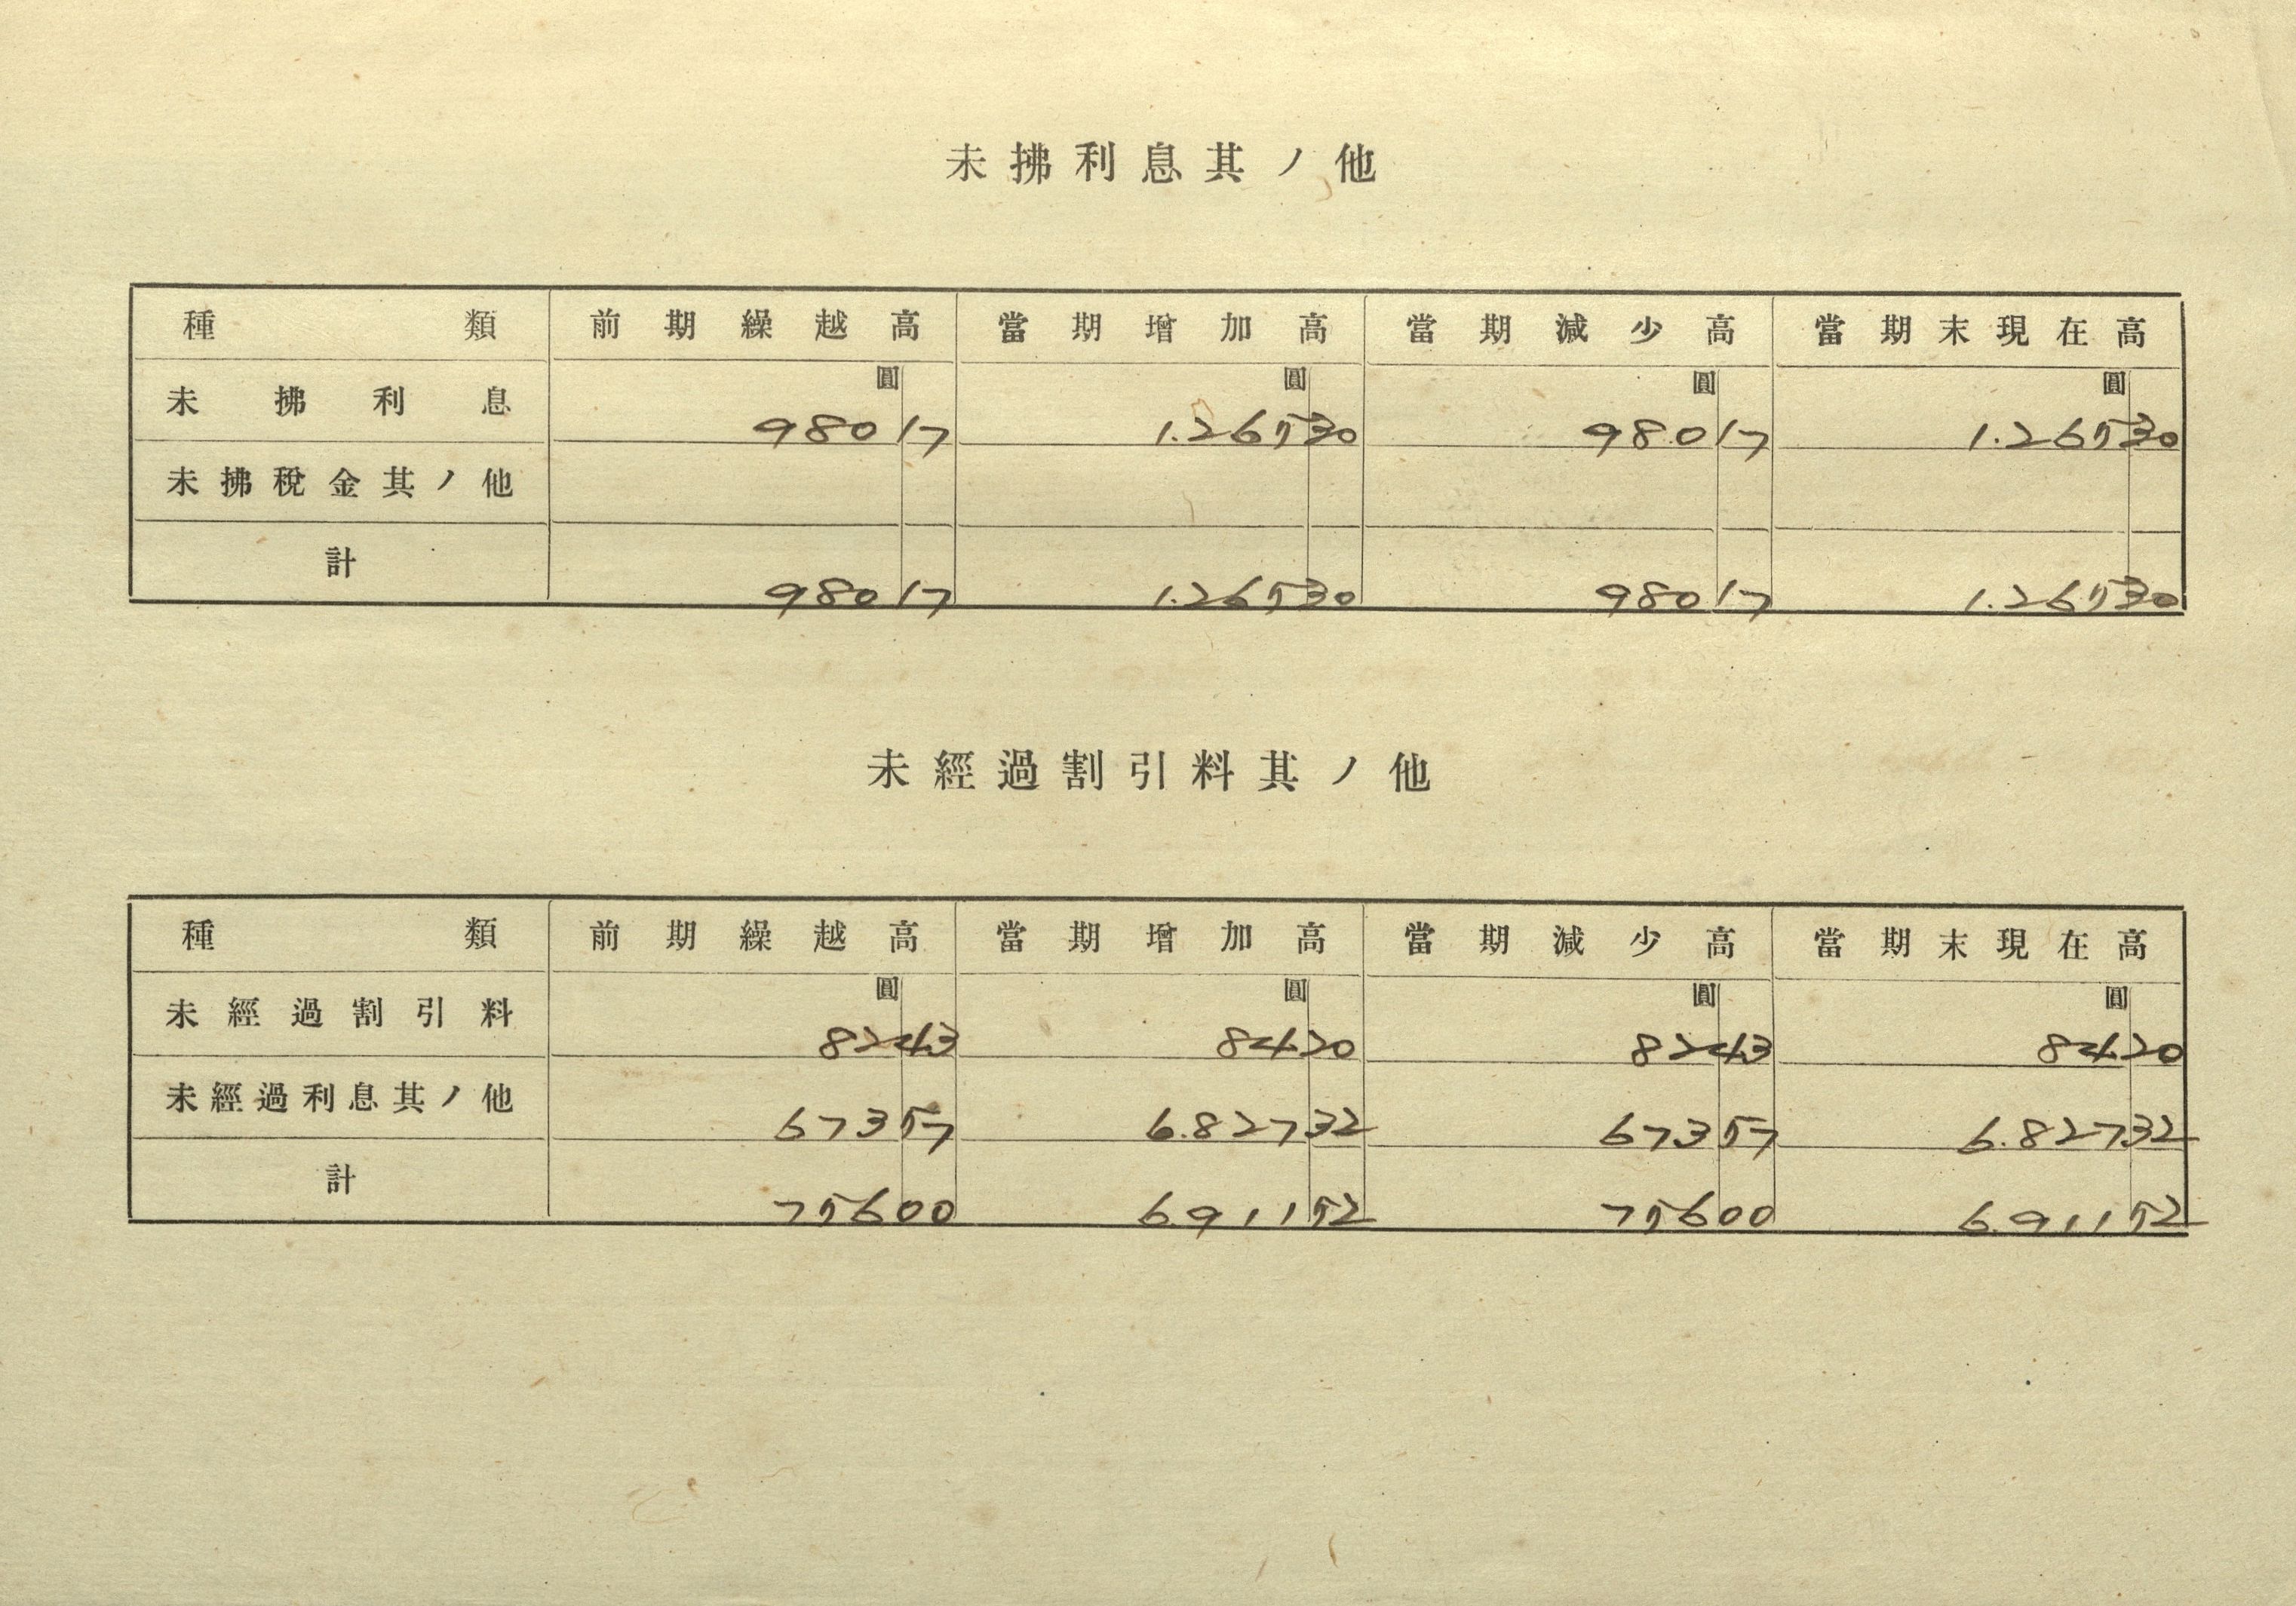 未拂利息其ノ他
種類 前期繰越高 當期增加高 當期減少高 當期末現在高
圓 圓 圓 圓
未拂利息 980 17 1.265 30 980 17 1.265 30
未拂稅金其ノ他
計 980 17 1.265 30 980 17 1.265 30
未經過割引料其ノ他
種類 前期繰越高 當期增加高 當期減少高 當期末現在高
圓 圓 圓 圓
未經過割引料 82 43 84 20 82 43 84 20
未經過利息其ノ他 673 57 6.827 32 673 57 6.827 32
計 756 00 6.911 52 756 00 6.911 52